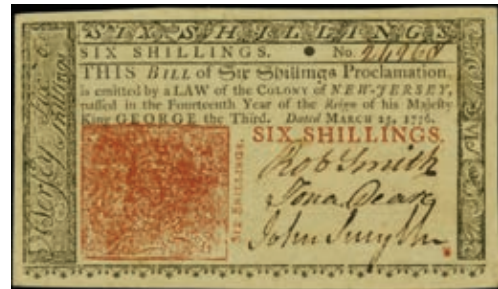 SIX SHILLINGS
SIX SHILLINGS. No.
THIS BILL of Six Shillings Proclamation,
is emitted by a LAW of the COLONY of NEW-JERSEY,
passed in the Fourteenth Year of the Reign of his Majesty
King GEORGE the Third. Dated MARCH 25, 1776.
SIX SHILLINGS.
Rob Smith
Jona Deare
John Smyth
SIX SHILLINGS.
N. Jersey
Shillings